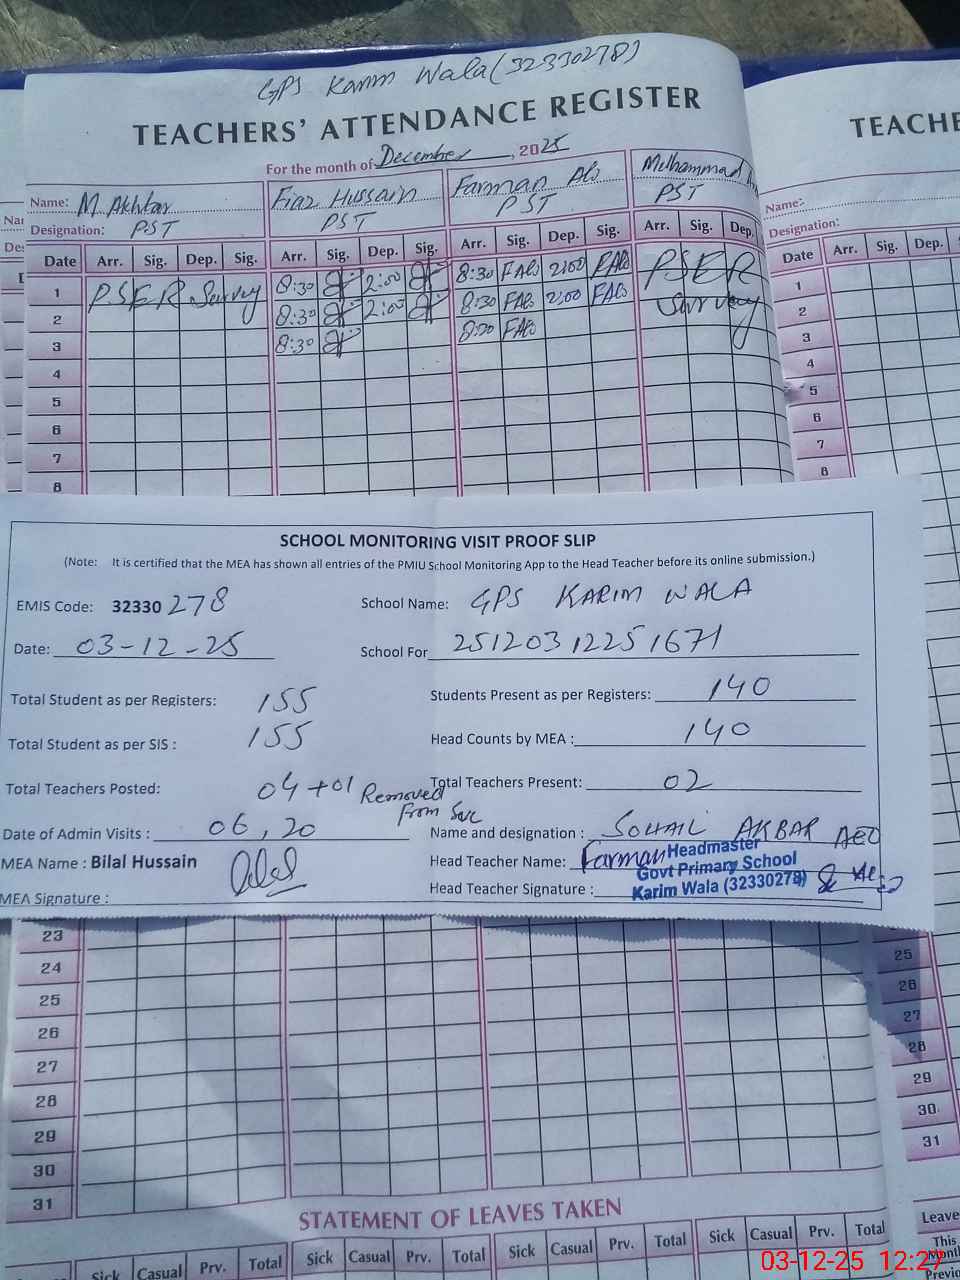 GPS Karim Wala (32330278)
TEACHERS' ATTENDANCE REGISTER
For the month of December, 2025
Name: M. Akhtar Fiaz Hussain Farman Ali Muhammad
Designation: PST PST PST PST
Date Arr. Sig. Dep. Sig. Arr. Sig. Dep. Sig. Arr. Sig. Dep. Sig. Arr. Sig. Dep.
1 PSER Survey 8:30 2:00 8:30 FAli 2:00 FAli PSER
2 8:30 2:00 8:30 FAli 2:00 FAli Survey
3 8:30 8:30 FAli
4
5
6
7
8
TEACHE
Name:
Designation:
Date Arr. Sig. Dep.
1
2
3
4
5
6
7
8
SCHOOL MONITORING VISIT PROOF SLIP
(Note: It is certified that the MEA has shown all entries of the PMIU School Monitoring App to the Head Teacher before its online submission.)
EMIS Code: 32330278 School Name: GPS KARIM WALA
Date: 03-12-25 School For 25120312251671
Total Student as per Registers: 155 Students Present as per Registers: 140
Total Student as per SIS : 155 Head Counts by MEA : 140
Total Teachers Posted: 04+01 Removed From Total Teachers Present: 02
Date of Admin Visits : 06, 20 Name and designation : SOHAIL AKBAR AEO
MEA Name : Bilal Hussain Head Teacher Name: Farman
MEA Signature : Head Teacher Signature :
Headmaster
Govt Primary School
Karim Wala (32330278)
23
24
25
26
27
28
29
30
31
25
26
27
28
29
30
31
STATEMENT OF LEAVES TAKEN
Sick Casual Prv. Total Sick Casual Prv. Total Sick Casual Prv. Total Sick Casual Prv. Total
Leave
This
Month
Previo
03-12-25 12:27